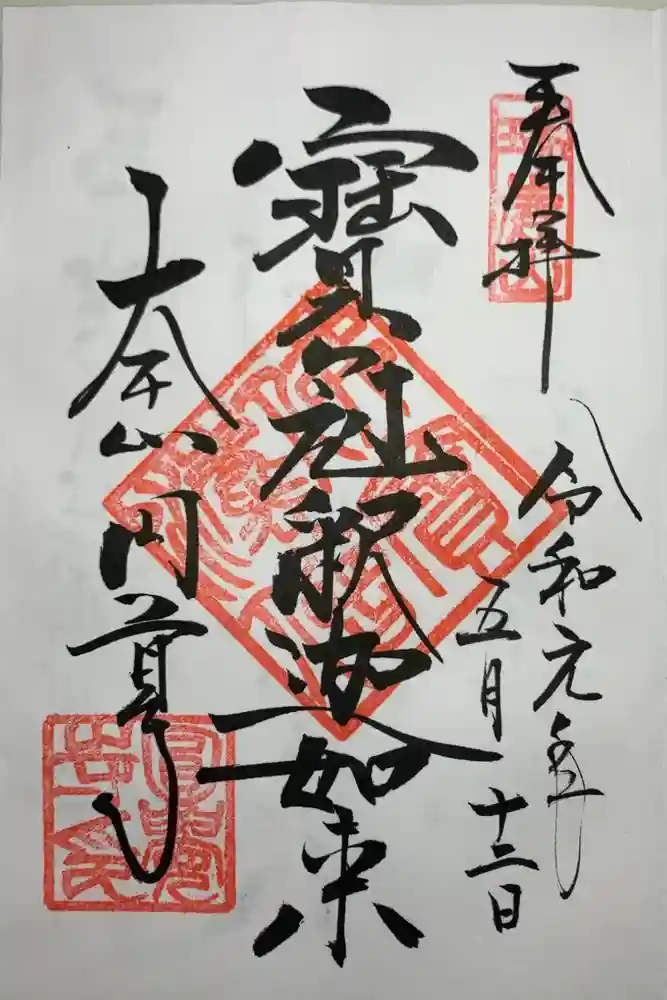 奉拝
令和元年
五月十二日
寶冠釈迦如来
大本山円覚寺